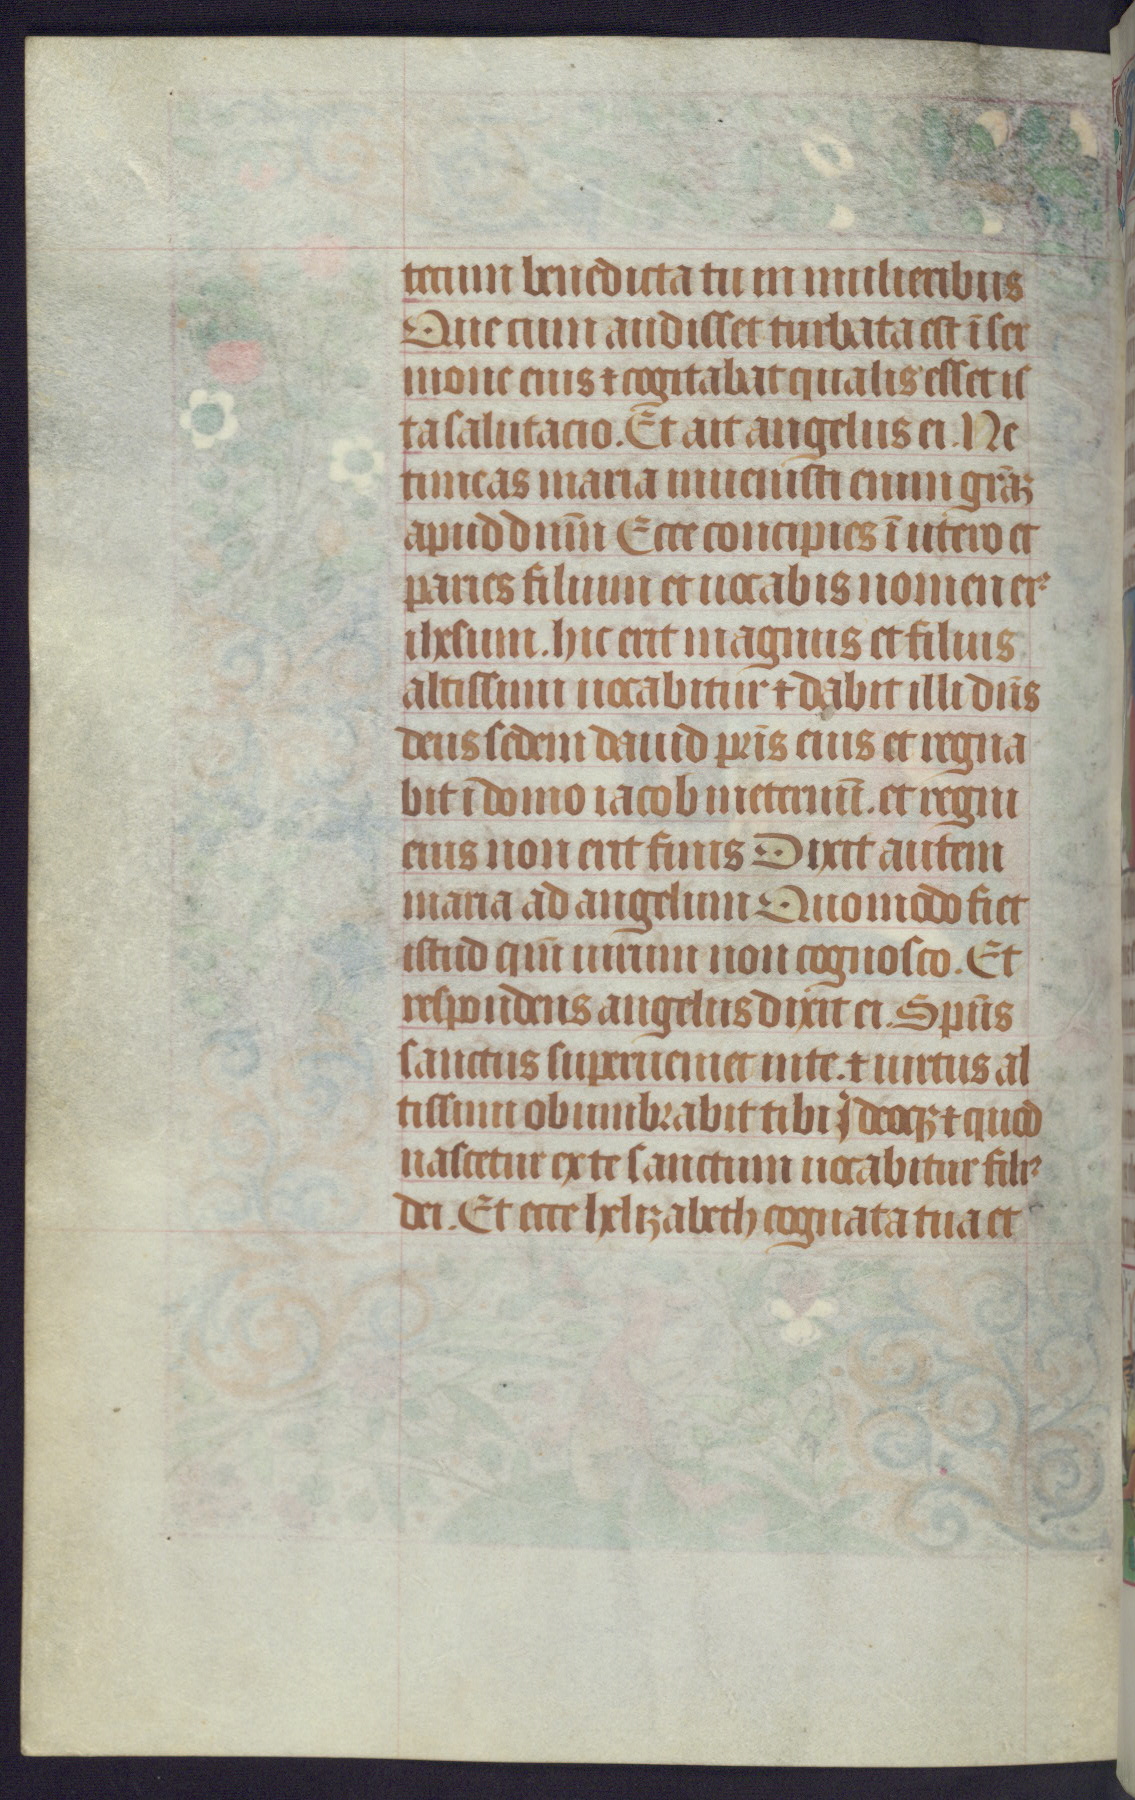 tecum benedicta tu in mulieribus
Que cum audisset turbata est ī ser
mone eius ⁊ cogitabat qualis esset is
ta salutacio. Et ait angelus ei. Ne
timeas maria inuenisti enim grāꝫ
apud dnm̄ Ecce concipies ī utero et
paries filium et uocabis nomen eiꝰ
ihesum. hic erit magnus et filius
altissimi uocabitur ⁊ dabit illi dn̄s
deus sedem dauid pr̄is eius et regna
bit ī domo iacob in eternū. et regni
eius non erit finis Dixit autem
maria ad angelum Quomodo fiet
istud qm̄ uirum non cognosco. Et
respondens angelus dixit ei. Spūs
sanctus superueniet in te. ⁊ uirtus al
tissimi obumbrabit tibi Ideoqꝫ ⁊ quod
nascetur ex te sanctum uocabitur filiꝰ
dei. Et ecce helizabeth cognata tua et